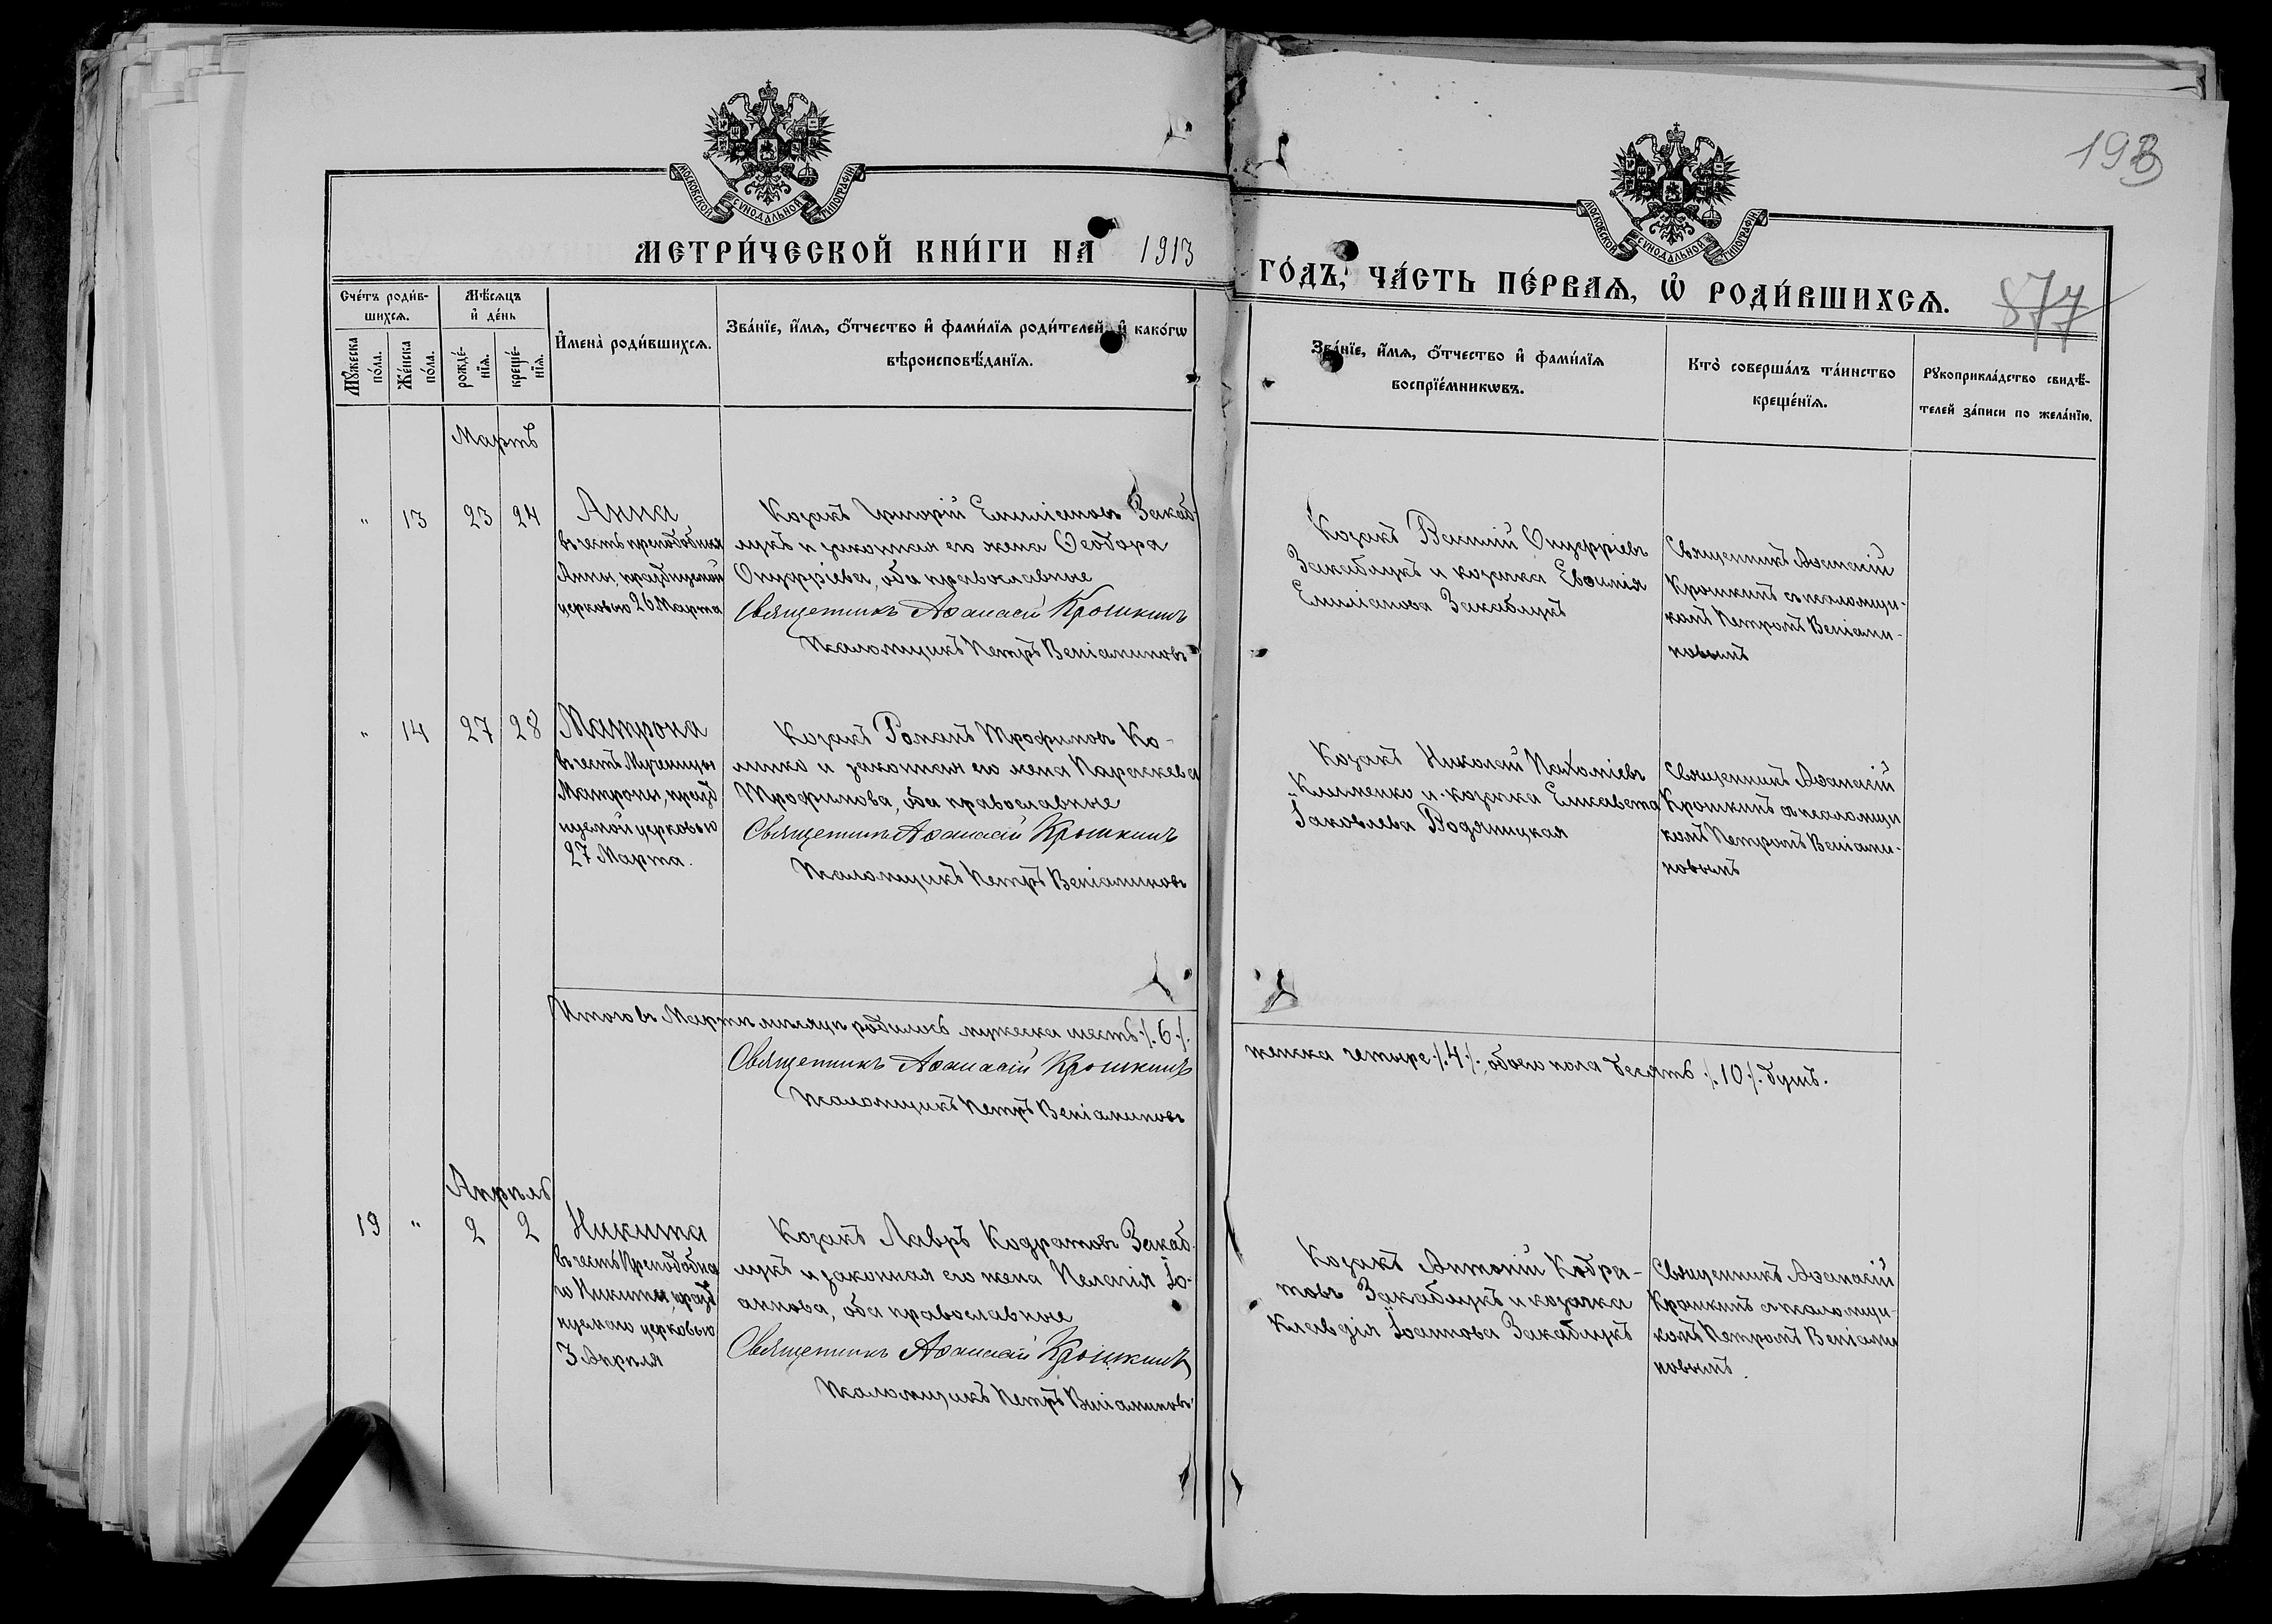 193
877
МОСКОВСКОЙ СѴНОДАЛЬНОЙ ТИПОГРАФІИ
МОСКОВСКОЙ СѴНОДАЛЬНОЙ ТИПОГРАФІИ
МЕТРИ́ЧЕСКОЙ КНИ́ГИ НА 1913
ГО́ДЪ, ЧА́СТЬ ПЕ́РВАЯ, Ѡ҆ РОДИ́ВШИХСЯ.
Сче́тъ роди́в-
шихся.
Мꙋ́жеска по́ла.
Же́нска по́ла.
Мѣ́сяцъ
и҆ де́нь
рожде́-
нїя.
креще́-
нїя.
И҆мена̀ роди́вшихся.
Зва́нїе, и҆́мя, ѻ҆́тчество и҆ фами́лїя роди́телей, и҆ како́гѡ
вѣроисповѣ́данїя.
Зва́нїе, и҆́мя, ѻ҆́тчество и҆ фами́лїя
воспрїе́мникѡвъ.
Кто̀ соверша́лъ та́инство
креще́нїя.
Рꙋкоприкла́дство свидѣ́-
телей за́писи по жела́нїю.
Мартъ
" 13 23 24
Анна
въ честь преподобныя
Анны, празднуемой
церковью 26 Марта
Козакъ Григорій Емиліановъ Закаб-
лукъ и законная его жена Ѳеодора
Онуфріева, оба православные
Священникъ Аѳанасій Крошкинъ
Псаломщикъ Петръ Веніаминовъ
Козакъ Василій Онуфріевъ
Закаблукъ и козачка Евѳимія
Емиліанова Закаблукъ
Священникъ Аѳанасій
Крошкинъ съ псаломщи-
комъ Петромъ Веніами-
новымъ
" 14 27 28
Матрона
въ честь Мученицы
Матроны, празд
нуемой церковью
27 Марта.
Козакъ Романъ Трофимовъ Ко-
и законная его жена Параскева
Трофимова, оба православные
Священникъ Аѳанасій Крошкинъ
Псаломщикъ Петръ Веніаминовъ
Козакъ Николай Пахоміевъ
Клименко и козачка Елисавета
Іаковлева Водяницкая
Священникъ Аѳанасій
Крошкинъ съ псаломщи
комъ Петромъ Веніами-
новымъ
Итого въ Мартѣ мѣсяцѣ родилось мужеска шесть ·/.6·/.
женска четыре ·/.4·/., обоего пола десять ·/.10·/. душъ.
Священникъ Аѳанасій Крошкинъ
Псаломщикъ Петръ Веніаминовъ
Апрѣль
19 " 2 2
Никита
въ честь Преподобна
го Никиты, празд
нуемаго церковью
3 Апрѣля
Козакъ Лавръ Кодратовъ Закаб-
лукъ и законная его жена Пелагія Іо-
аннова, оба православные
Священникъ Аѳанасій Крошкинъ
Псаломщикъ Петръ Веніаминовъ
Козакъ Антоній Кодра-
товъ Закаблукъ и козачка
Клавдія Іоаннова Закаблукъ
Священникъ Аѳанасій
Крошкинъ съ псаломщи-
комъ Петромъ Веніами
новымъ.